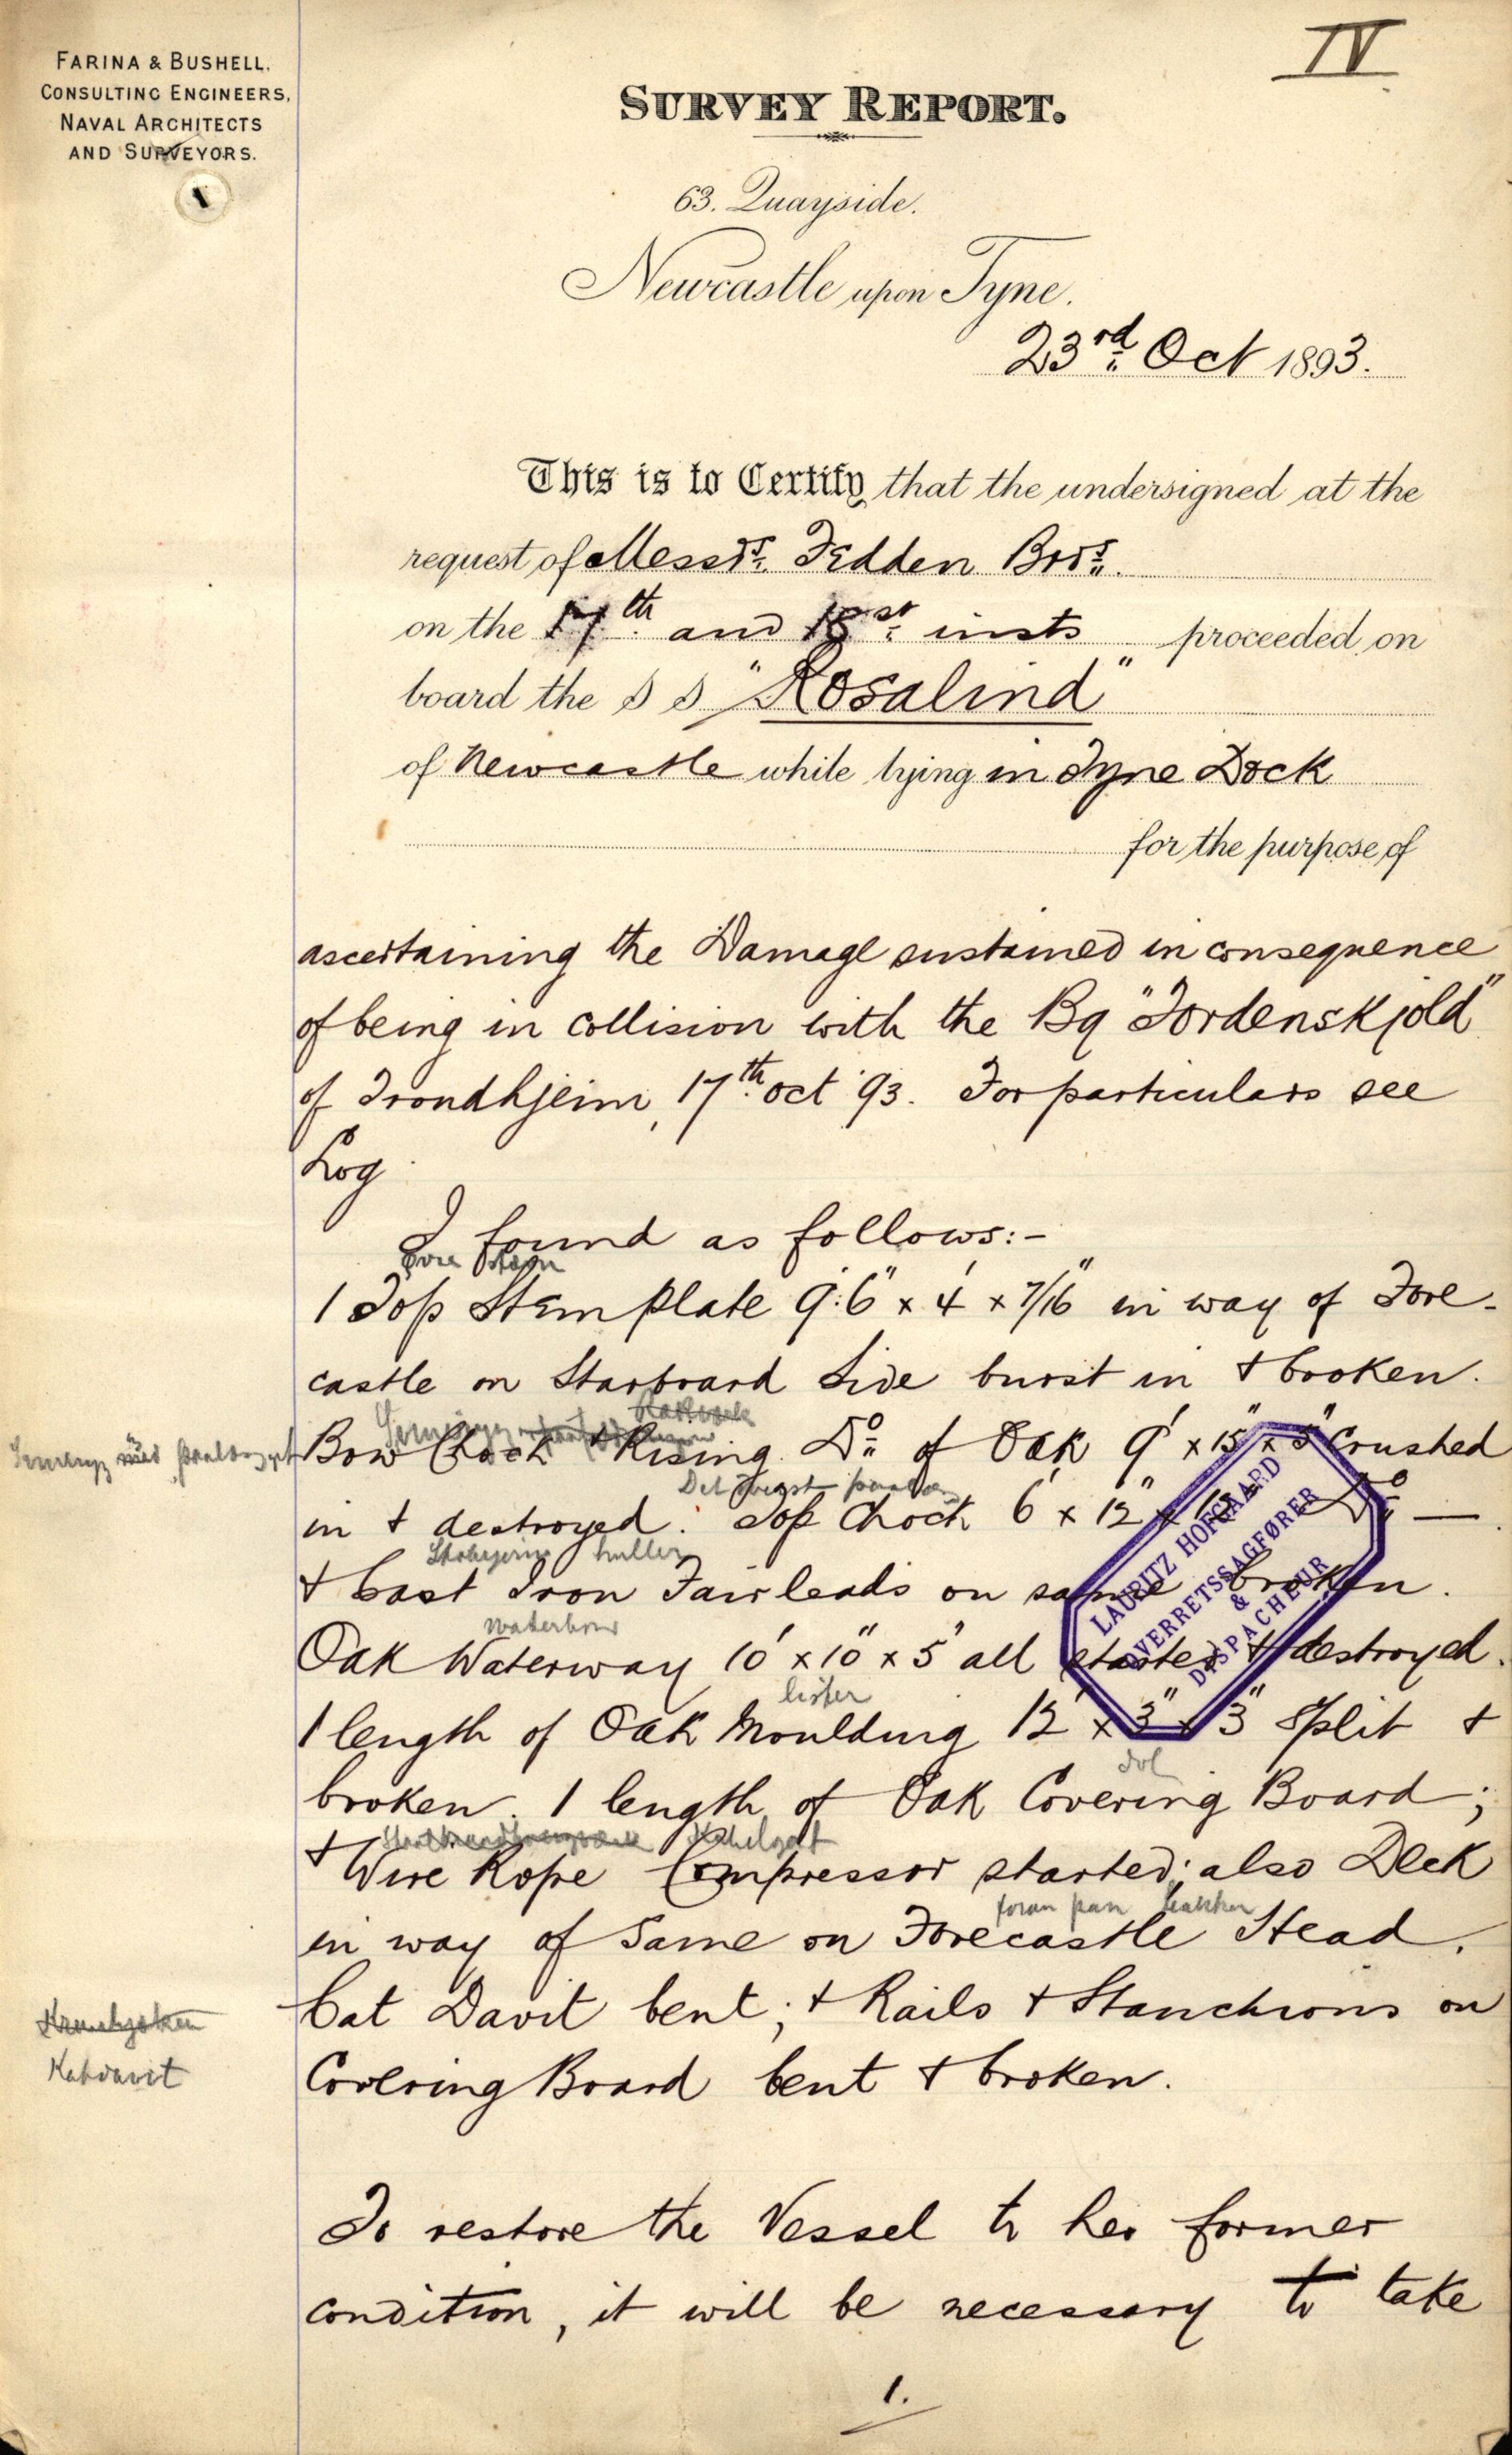 IV
FARINA & BUSHELL.
CONSULTING ENGINEERS,
NAVAL ARCHITECTS
AND SURVEYORS.
SURVEY REPORT.
63. Quayside.
Newcastle upon Tyne.
23rd Oct 1893.
This is to Certify that the undersigned at the
request of Messrs. Fedden Bros.
on the 17th and 18st insts proceeded on
board the SS "Rosalind"
of Newcastle while lying in Tyne Dock
for the purpose of
ascertaining the Damage sustained in consequence
of being in collision with the Bq "Tordenskjold"
of Trondhjeim, 17th Oct '93. For particulars see
Log
I found as follows:-
1 Top Stem plate 9':6" x 4' x 7/16" in way of Fore-
castle on Starboard Side burst in + broken.
Bow Chock + Rising Do of Oak 9' x 15" x 5" Crushed
Det øverst
in + destroyed. Top Chock 6' x 12" x Do —
huller
+ Cast Iron Fairleads on same broken.
waterbord
Oak Waterway 10' x 10" x 5" all started + destroyed.
lister
1 length of Oak Moulding 12' x 3" x 3" Split +
broken. 1 length of Oak Covering Board;
Kabelgat
+ Wire Rope Compressor started; also Deck
foran paa bakken
in way of Same on Forecastle Head.
Cat Davit bent; + Rails + Stanchions on
Katdavit
Covering Board bent + broken.
LAURITZ HOFGAARD
OVERRETSSAGFØRER
&
DISPACHEUR
To restore the Vessel to her former
condition, it will be necessary to take
1.